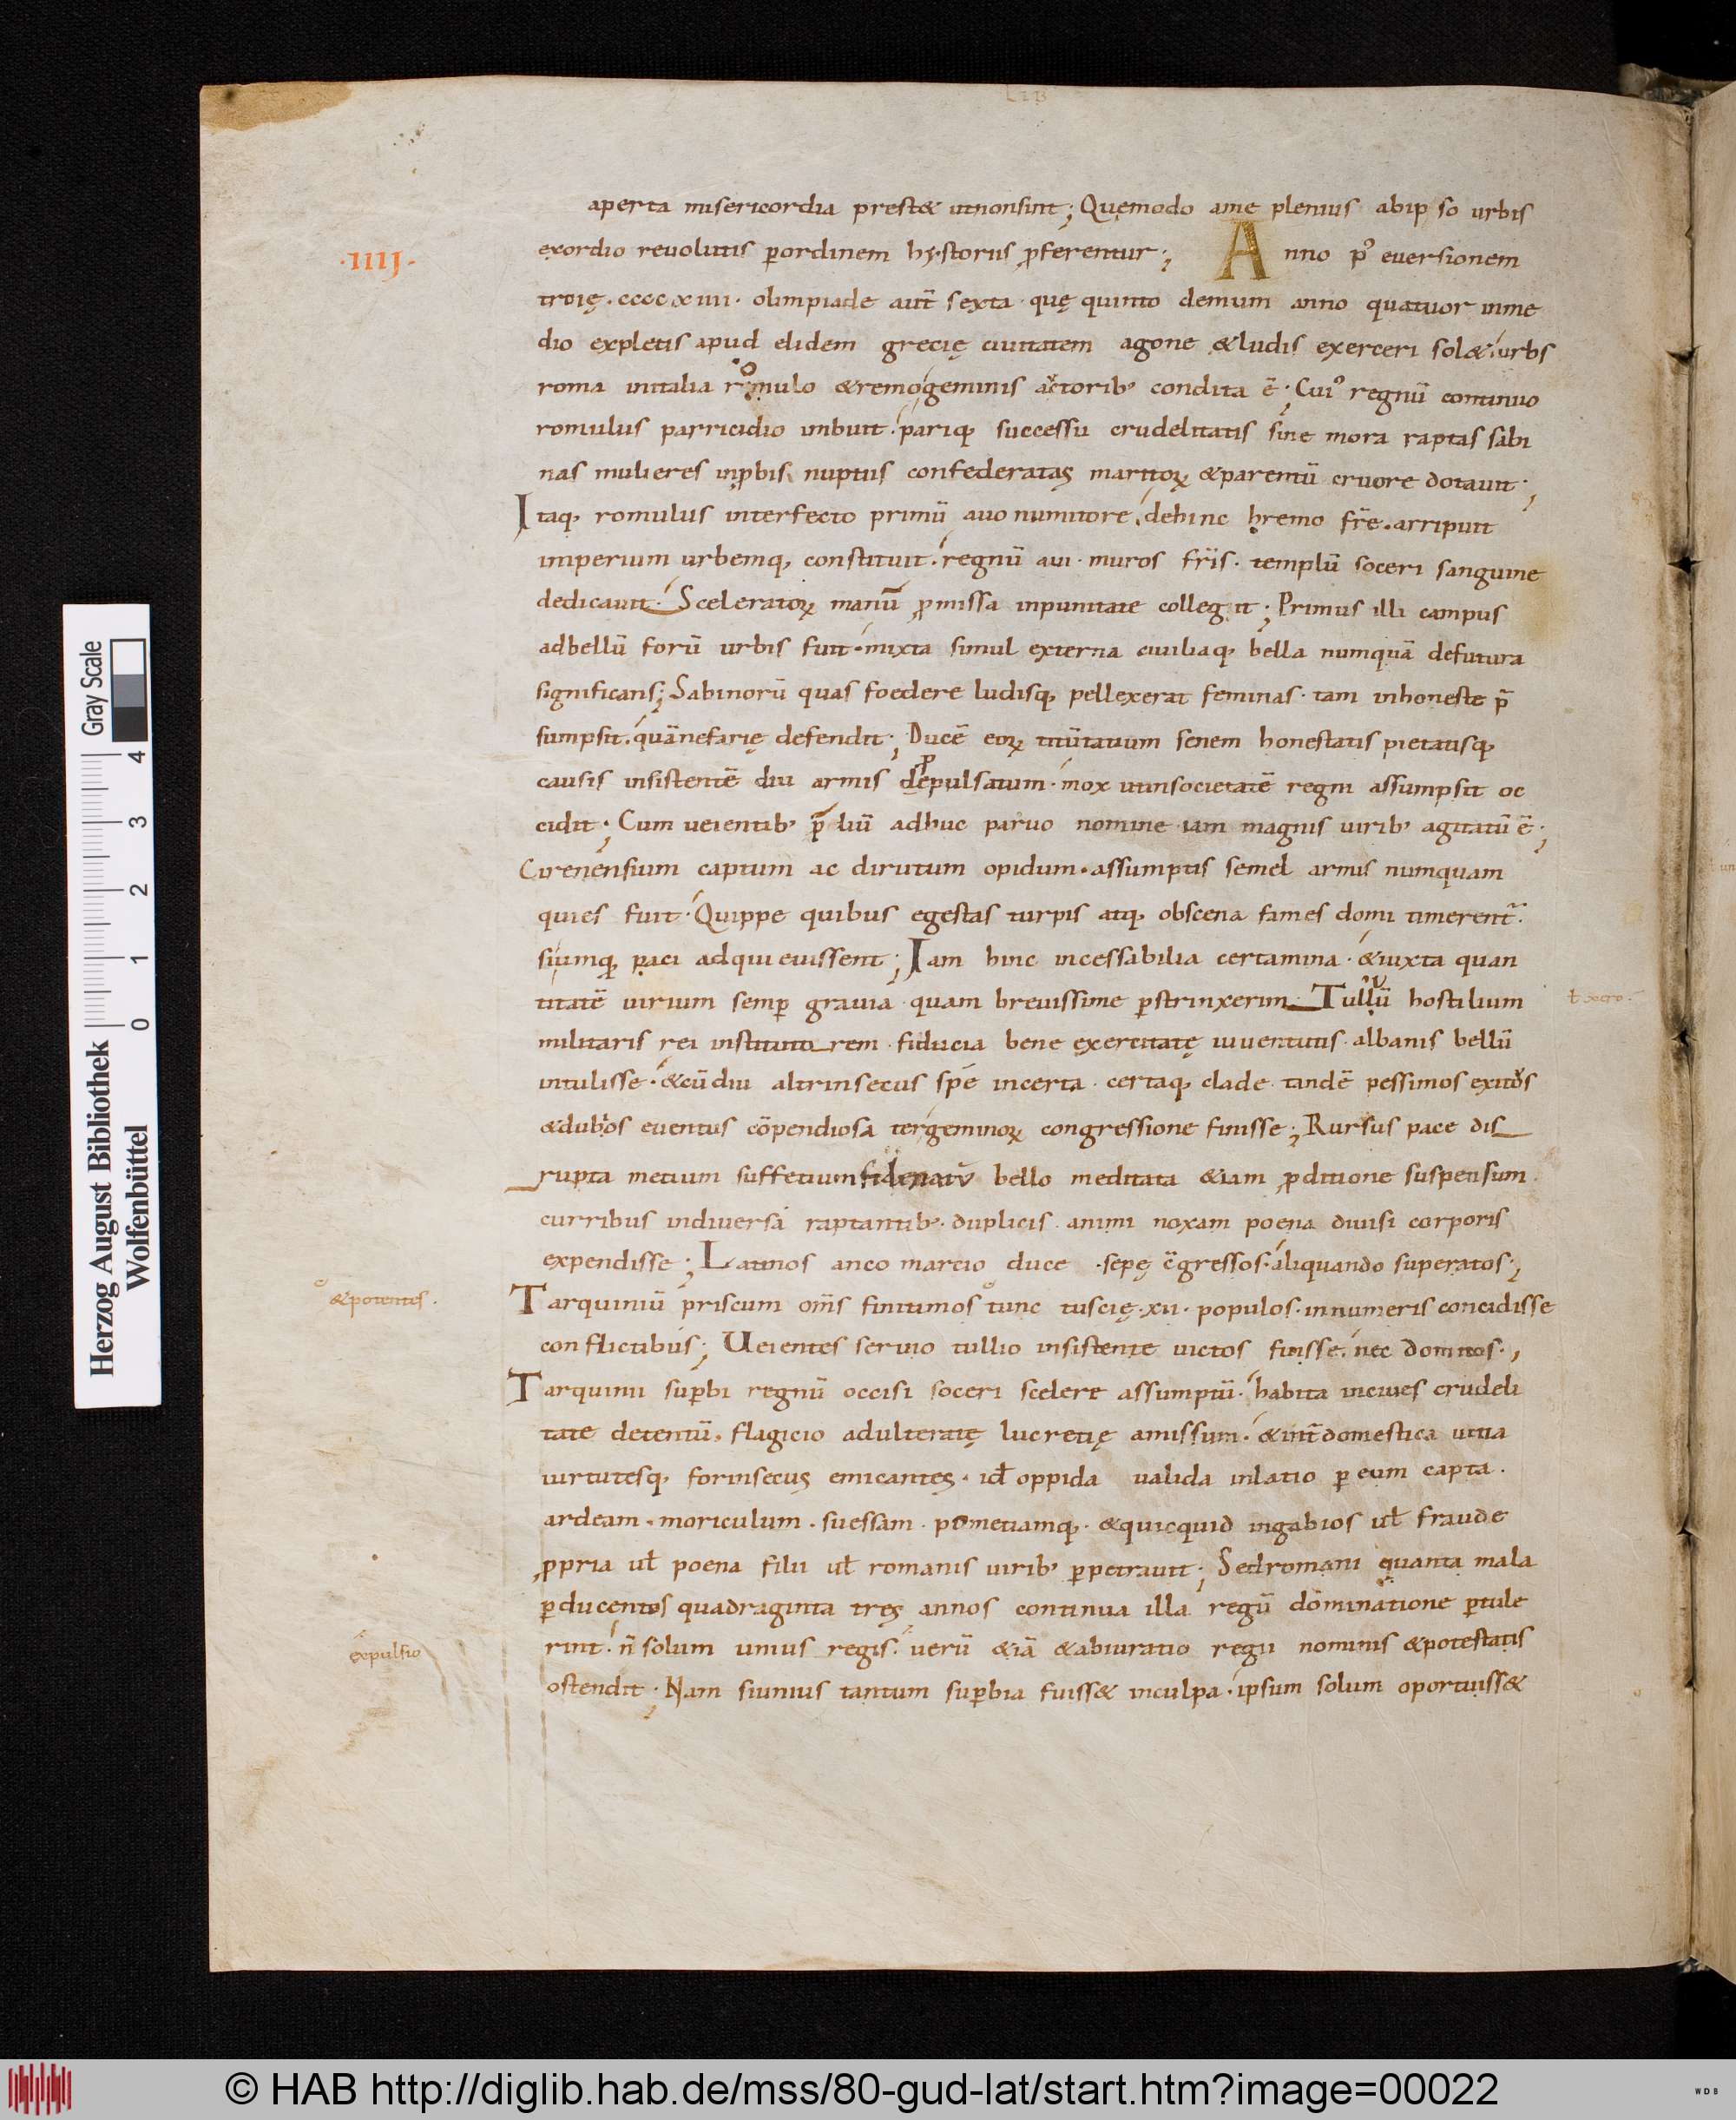 aperta misericordia prest& utnonsint; Quęmodo ame plenius abip so urbis
exordio reuolutis pordinem hystoriis pferentur; Anno p' euersionem
·IIIJ·
troię· ccccxiiii· olimpiade aut̄ sexta· quę quinto demum anno quatuor inme
dio expletis apud elidem grecię ciuitatem agone &ludis exerceri sol&· urbs
roma initalia romulo &remo geminis auctorib' condita ē; Cui' regnū continuo
romulus parricidio imbuit· pariq; successu crudelitatis sine mora raptas sabi
nas mulieres inpbis nuptiis confederatas maritoꝝ &parentū cruore dotauit;
Itaq; romulus interfecto primū auo numitore· dehinc remo fr̄e· arripuit
imperium urbemq; constituit· regnū aui· muros fr̄is· templū soceri sanguine
dedicauit· Sceleratoꝝ manū pmissa inpunitate collegit; Primus illi campus
adbellū forū urbis fuit· mixta simul externa ciuiliaq; bella numquā defutura
significans; Sabinorū quas foedere ludisq; pellexerat feminas· tam inhoneste p̄
sumpsit· quānefarię defendit; Ducē eoꝝ titūtatium senem honestatis pietatisq;
causis insistentē diu armis depulsatum· mox utinsocietatē regni assumpsit oc
cidit; Cum ueientib' p̄liū adhuc paruo nomine iam magnis uirib' agitatū ē;
Cirenensium captum ac dirutum opidum· assumptis semel armis numquam
quies fuit· Quippe quibus egestas turpis atq; obscena fames domi timerent̄
siumq; paci adquieuissent; Iam hinc incessabilia certamina· &iuxta quan
titatē uirium semp grauia quam breuissime pstrinxerim· Tullū hostilium
militaris rei institutorem· fiducia bene exercitatę iuuentutis· albanis bellū
intulisse· &cūdiu altrinsecus spē incerta· certaq; clade tandē pessimos exitus
&dubios euentus cōpendiosa tergeminoꝝ congressione finisse; Rursus pace dis
rupta metium suffetium fidenatiū bello meditata &iam pditione suspensum
curribus indiuersa raptantib'· duplicis animi noxam poena diuisi corporis
expendisse; Latinos anco marcio duce· sepę c̄gressos· aliquando superatos;
Tarquiniū priscum om̄s finitimos tunc tuscię·xii· populos· innumeris concidisse
&potentes·
conflictibus; Ueientes seruio tullio insistente uictos fuisse· nec domitos;
Tarquinii supbi regnū occisi soceri scelere assumptū· habita inciues crudeli
tate detentū· flagicio adulteratę lucretię amissum· &int̄ domestica uitia
uirtutesq; forinsecus emicantes· id̄ oppida ualida inlatio p eum capta·
ardeam· moriculum· suessam· pometiamq;· &quicquid ingabios ul̄ fraude
ppria ul̄ poena filii ul̄ romanis uirib' ppetrauit; Sedromani quanta mala
pducentos quadraginta tres annos continua illa regū dominatione ptule
rint· n̄ solum unius regis· uerū &iā &abiuratio regii nominis &potestatis
expulsio
ostendit· Nam siunius tantum supbia fuiss& inculpa· ipsum solum oportuiss&
Herzog August Bibliothek
Wolfenbüttel
0 1 2 3 4 Gray Scale
© HAB http://diglib.hab.de/mss/80-gud-lat/start.htm?image=00022
WDB